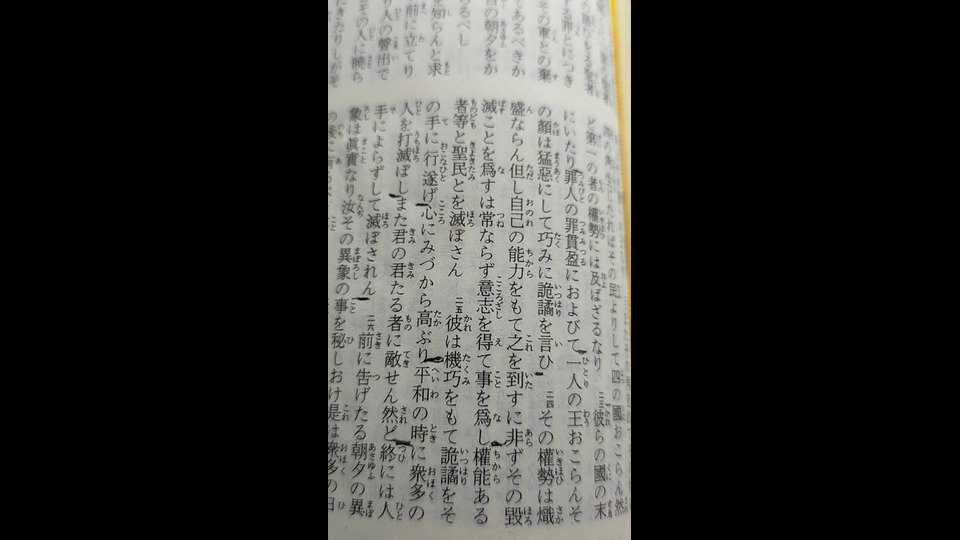 る罪とにつき
その軍との棄
であるべきか
の朝夕をか
るべし
を知らんと求
前に立てり
り人の聲出で
その人に曉ら
にきたりしがそ
たればその民よりして四の國おこらん然
ど第一の者の權勢には及ばざるなり 二三 彼らの國の末
にいたり罪人の罪貫盈におよびて一人の王おこらんそ
の顔は猛惡にして巧みに詭譎を言ひ 二四 その權勢は熾
盛ならん但し自己の能力をもて之を到すに非ずその毀
滅ことを爲すは常ならず意志を得て事を爲し權能ある
者等と聖民とを滅ぼさん 二五 彼は機巧をもて詭譎をそ
の手に行遂げ心にみづから高ぶり平和の時に衆多の
人を打滅ぼしまた君の君たる者に敵せん然ど終には人
手によらずして滅ぼされん 二六 前に吿げたる朝夕の異
象は眞實なり汝その異象の事を秘しおけ是は衆多の日